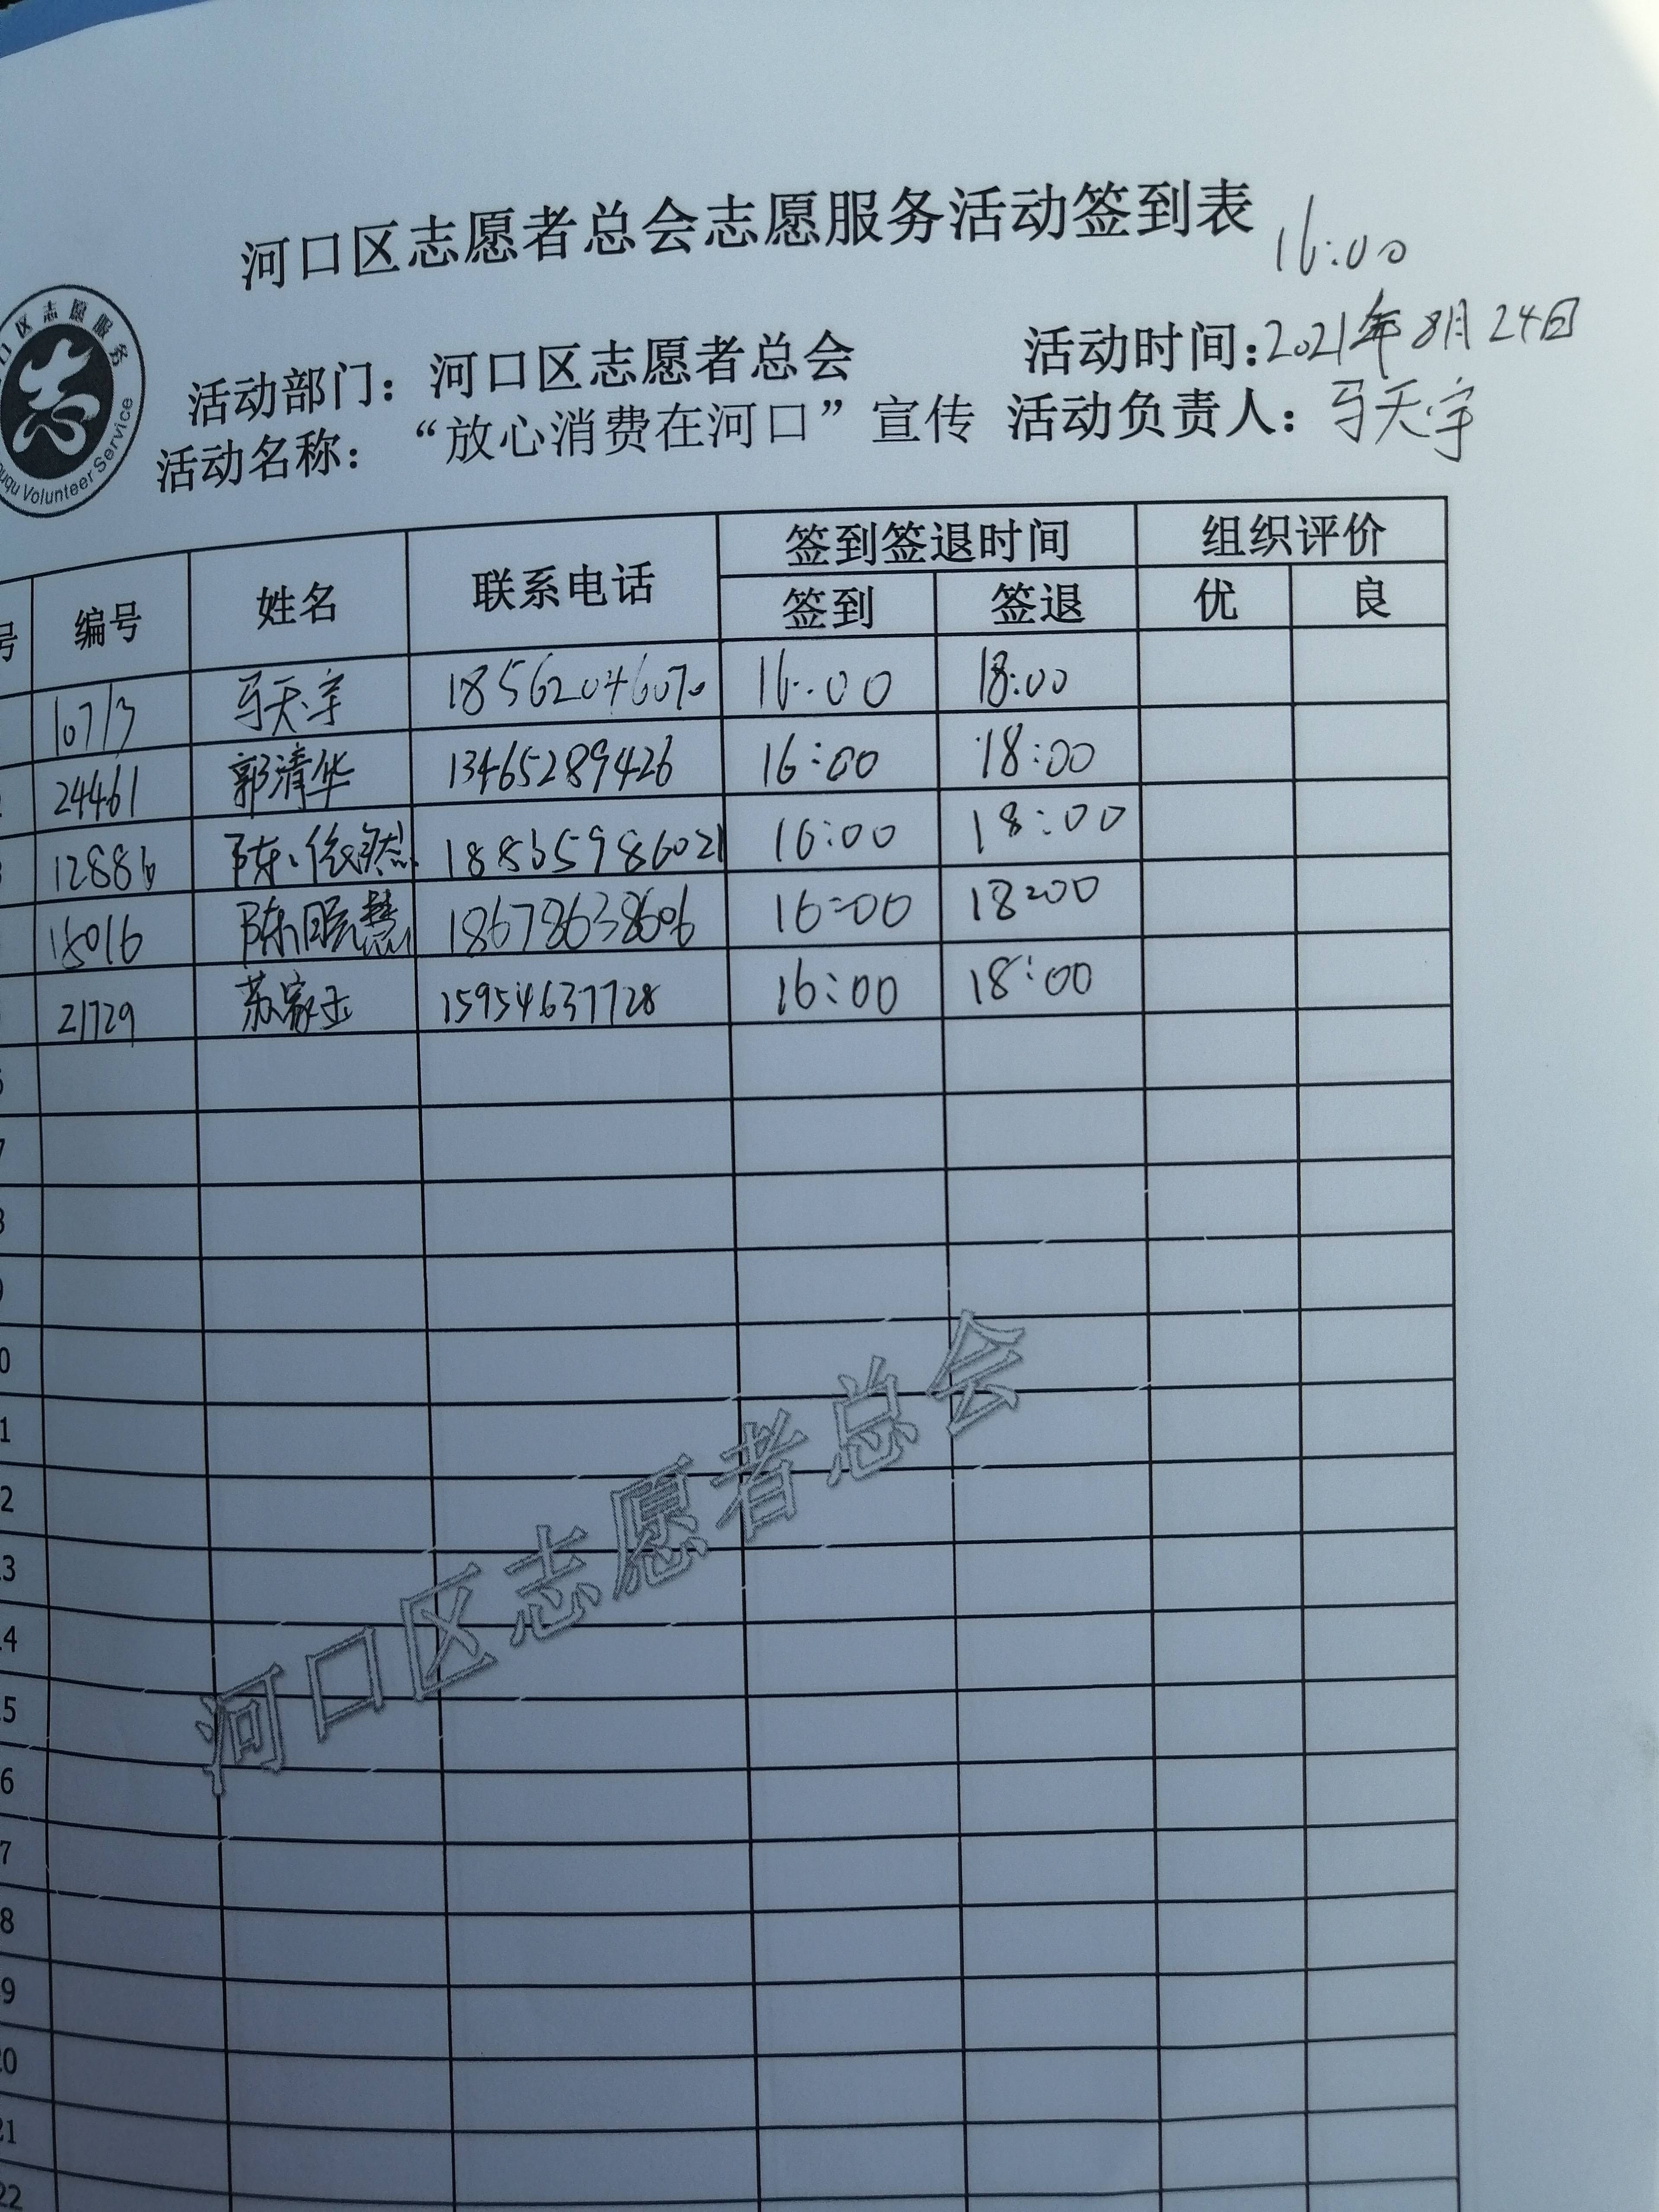 河口区志愿者总会志愿服务活动签到表
16:00
口区志愿服务
ouqu Volunteer Service
活动部门：河口区志愿者总会 活动时间：2021年8月24日
活动名称：“放心消费在河口”宣传 活动负责人：马天宇
号 编号 姓名 联系电话 签到签退时间 组织评价
签到 签退 优 良
10713 马天宇 18562046070 16:00 18:00
24461 郭清华 13465289426 16:00 18:00
12886 陈依然 18865986021 16:00 18:00
15016 陈晓慧 18678638606 16:00 18:00
21729 苏家玉 15954637728 16:00 18:00
7
8
9
0
1
2
3
4
5
6
7
8
9
20
21
22
河口区志愿者总会